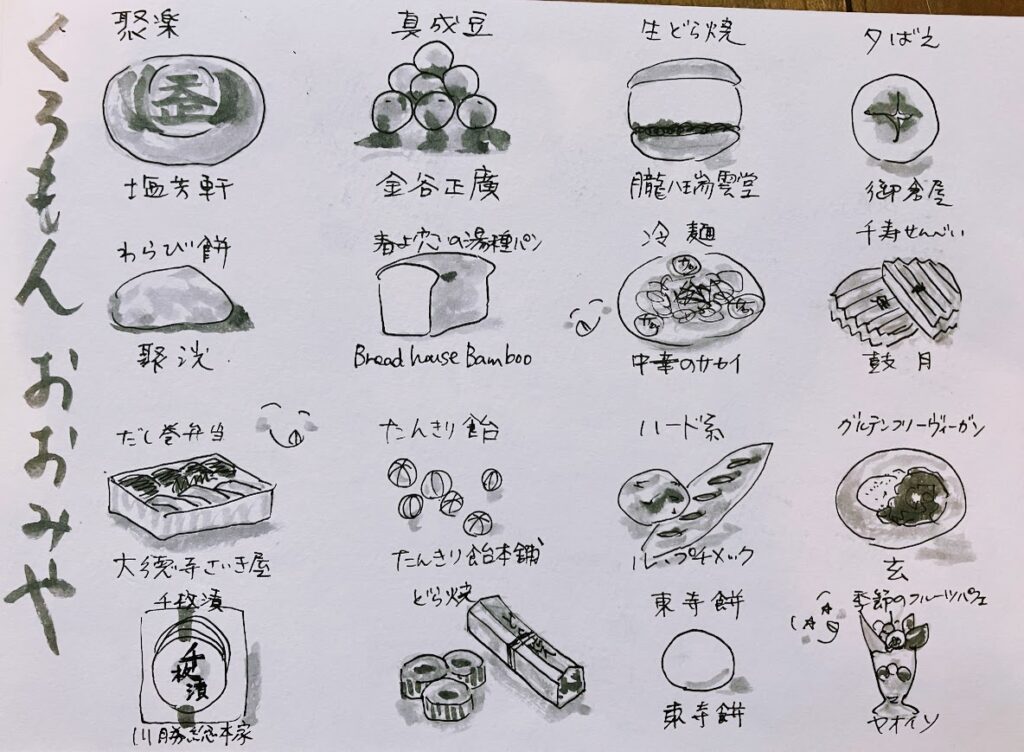 くろもん おおみや
聚楽
歪
塩芳軒
真成豆
金谷正廣
生どら焼
朧八瑞雲堂
夕ばえ
御倉屋
わらび餅
聚洸
春よ恋の湯種パン
Bread house Bamboo
冷麺
中華のサカイ
千寿せんべい
鼓月
だし巻弁当
大德寺さいき屋
たんきり飴
たんきり飴本舗
ハード系
ル・プチメック
グルテンフリーヴィーガン
玄
千枚漬
千枚漬
川勝総本家
どら焼
東寺餅
東寺餅
季節のフルーツパフェ
ヤオイソ